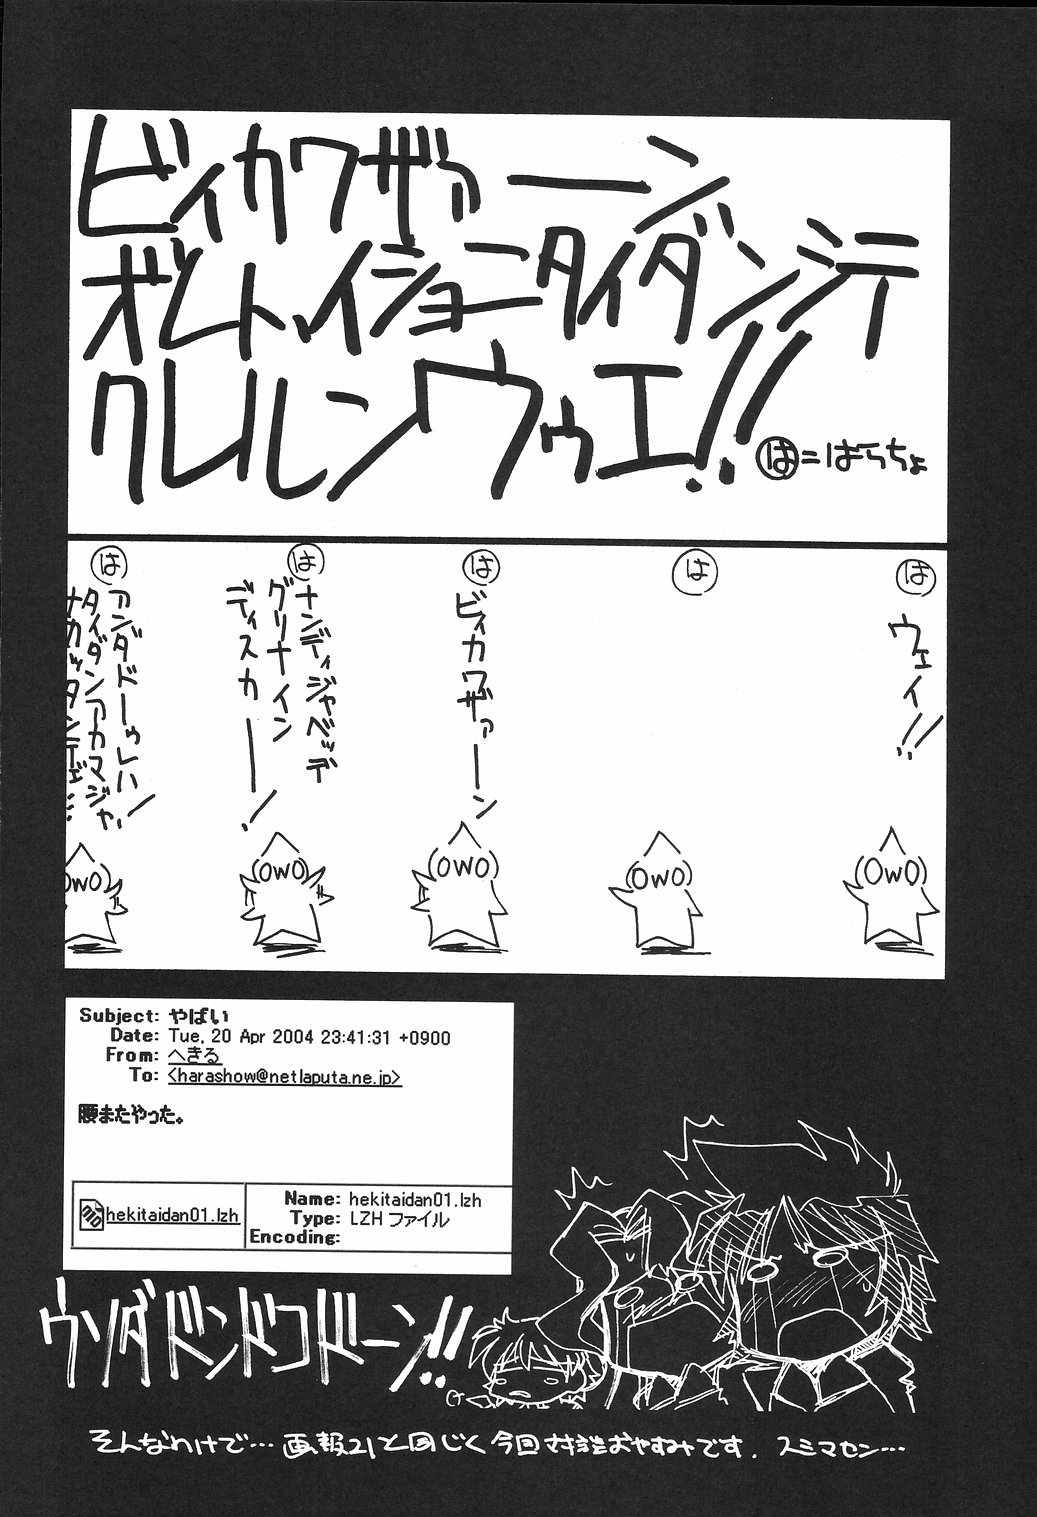 ビィカワザァーン
オレトイショーニタイダンシテ
クレルンウゥエ!!
は=はらちょ
は
ウェイ!!
は
は
ビィカワザァーン
は
ナンディジャベッデ
グリナイン
ディスカー!
は
アンダドーゥレハ!
タイダンアカマジャ,
ナカッタンディェ…
(OwO)
(OwO)
(OwO)
(OwO)
OwO)
Subject: やばい
Date: Tue, 20 Apr 2004 23:41:31 +0900
From: へきる
To: <harashow@netlaputa.ne.jp>
腰またやった。
hekitaidan01.lzh
Name: hekitaidan01.lzh
Type: LZH ファイル
Encoding:
ウソダドンドコドーン!!
そんなわけで…画報21と同じく今回対談おやすみです. スミマセン…